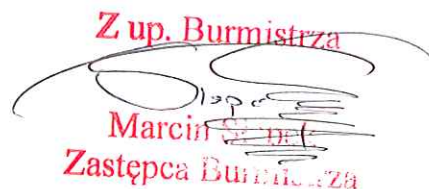 Z up. Burmistrza
Marcin
Zastępca Burmistrza